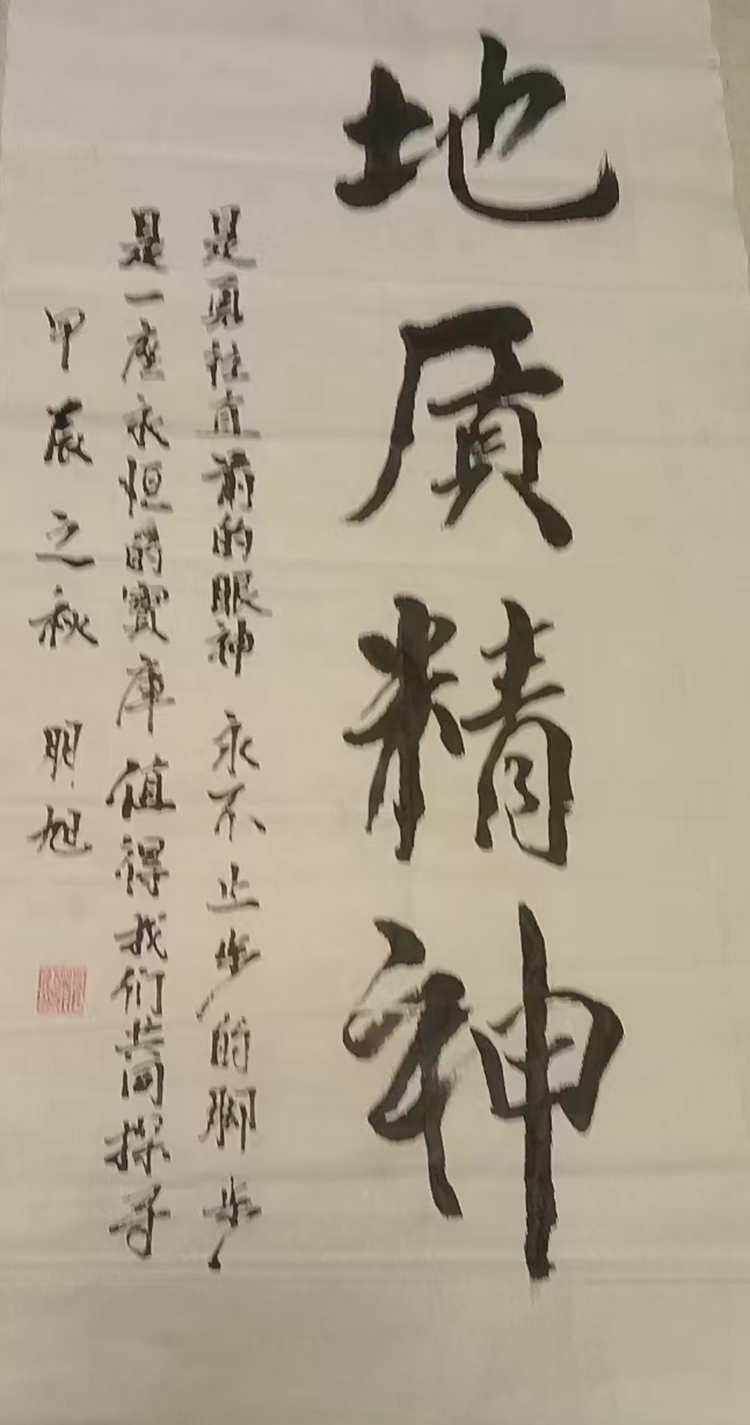 地质精神
是勇往直前的眼神 永不止步的脚步
是一座永恒的寳库值得我们共同探寻
甲辰之秋 明旭